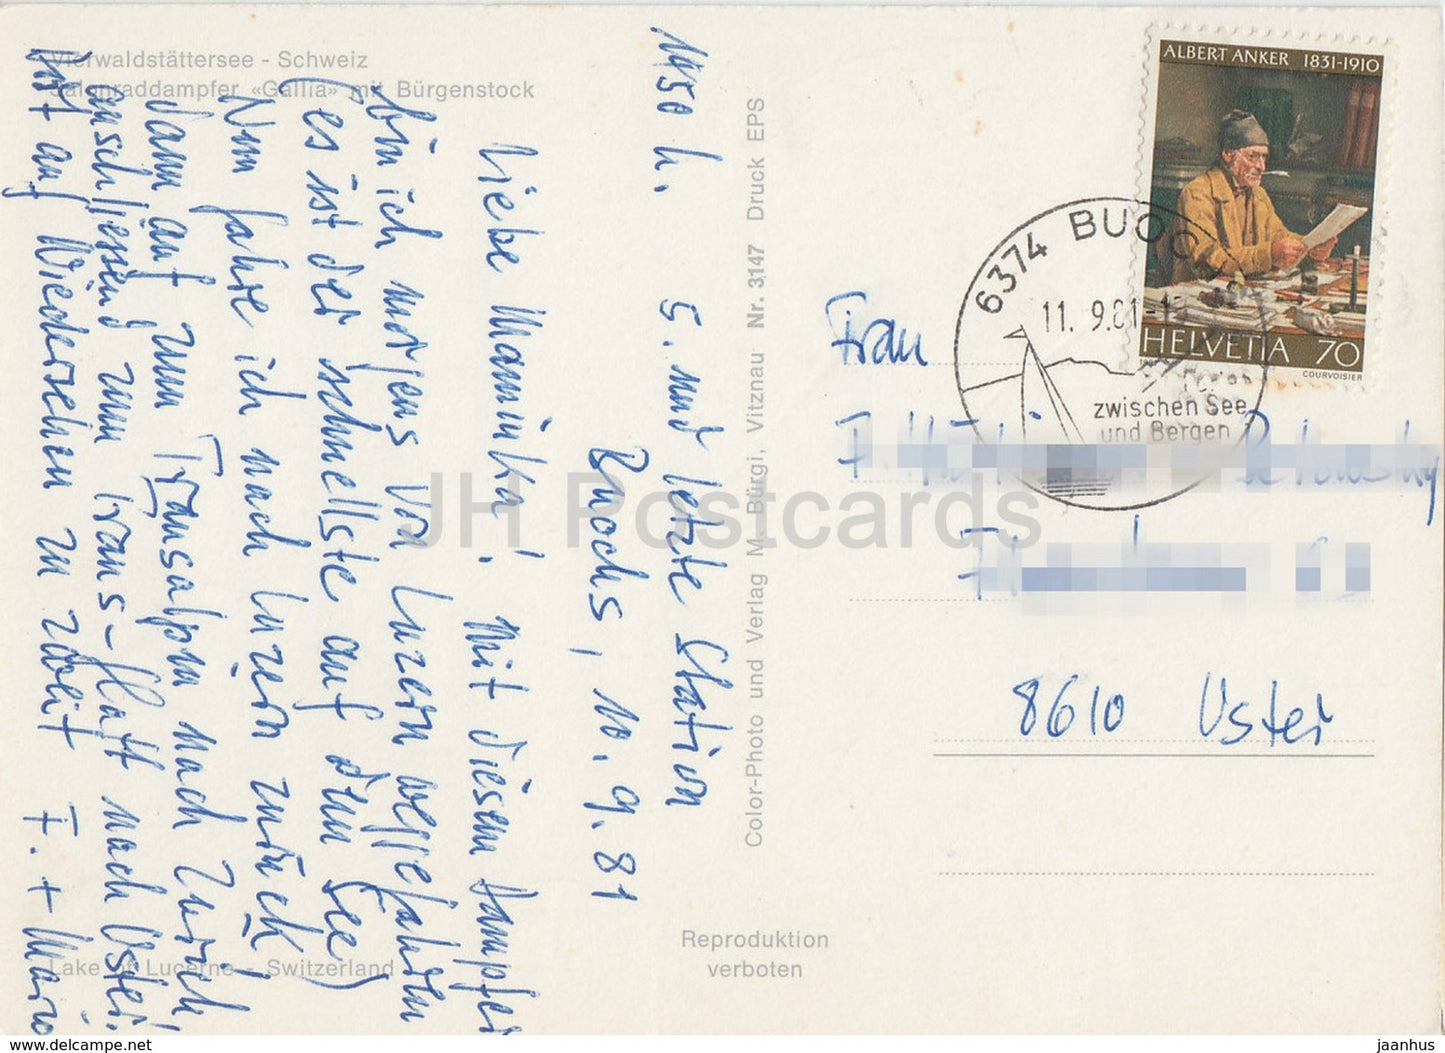 Vierwaldstättersee - Schweiz
Salonraddampfer «Gallia» mit Bürgenstock
1450 h. 5. und letzte Station
Buochs, 10. 9. 81
Liebe Maminka! Mit diesem Dampfer
bin ich morgens von Luzern weggefahren
(es ist der schnellste auf dem See)
Nun fahre ich nach Luzern zurück,
dann auf zum Transalpin nach Zürich
anschliessend zum Trans-Glatt nach Uster.
Auf Wiedersehen zu zweit F. + Mario
Lake of Lucerne - Switzerland
Color-Photo und Verlag M. Bürgi, Vitznau Nr. 3147 Druck EPS
Reproduktion
verboten
ALBERT ANKER 1831-1910
HELVETIA 70
COURVOISIER
6374 BUOCHS
11. 9.81
zwischen See
und Bergen
Frau
8610 Uster
JH Postcards
delcampe.net
jaanhus